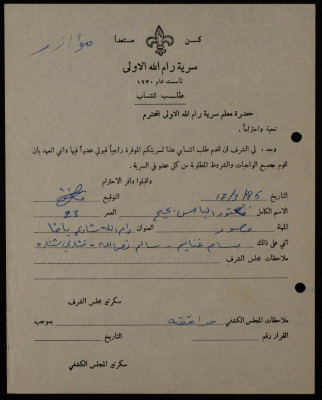 مؤازر
كن مستعداً
سرية رام الله الاولى
تأسست عام ١٩٣٠
طلب انتساب
حضرة معلم سرية رام الله الاولى المحترم
تحية واحتراماً،
وبعد، لي الشرف ان اقدم طلب انتسابي هذا لسريتكم الموقرة راجياً قبولي عضواً فيها واني اتعهد بان
اقوم بجميع الواجبات والشروط المطلوبة من كل عضو في السرية.
واقبلوا وافر الاحترام
التاريخ 17/3/85 التوقيع
الاسم الكامل الياس العمر 23
المهنة مصور العنوان رام الله شارع يافا
اثني على ذلك بسام غنايم - سالم نصرالله - شادي
ملاحظات مجلس الشرف
سكرتير مجلس الشرف
ملاحظات المجلس الكشفي موافقه بموجب
القرار رقم التاريخ
سكرتير المجلس الكشفي